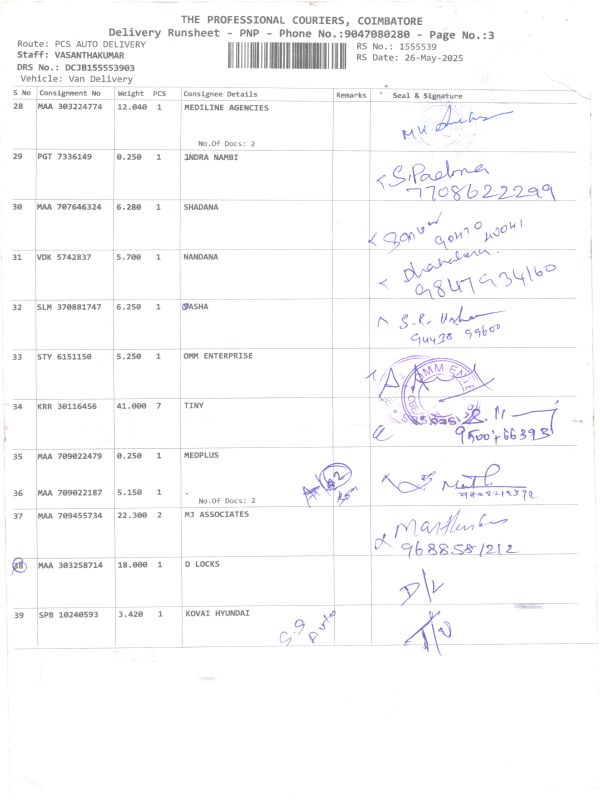 THE PROFESSIONAL COURIERS, COIMBATORE
Delivery Runsheet - PNP - Phone No.:9047080280 - Page No.:3
Route: PCS AUTO DELIVERY
RS No.: 1555539
Staff: VASANTHAKUMAR
RS Date: 26-May-2025
DRS No.: DCJB155553903
Vehicle: Van Delivery
S No Consignment No Weight PCS Consignee Details Remarks Seal & Signature
28 MAA 303224774 12.040 1 MEDILINE AGENCIES
No.Of Docs: 2
29 PGT 7336149 0.250 1 INDRA NAMBI
S.Padma
7708622299
30 MAA 707646324 6.280 1 SHADANA
31 VDK 5742837 5.700 1 NANDANA
9847934160
32 SLM 370881747 6.250 1 VASHA
S.R.
94438 99600
33 STY 6151150 5.250 1 OMM ENTERPRISE
OMM ENTE
34 KRR 30116456 41.000 7 TINY
35 MAA 709022479 0.250 1 MEDPLUS
36 MAA 709022187 5.150 1 .
No.Of Docs: 2
37 MAA 709455734 22.300 2 MJ ASSOCIATES
9688581212
38 MAA 303258714 18.000 1 D LOCKS
D/L
39 SPB 10240593 3.420 1 KOVAI HYUNDAI